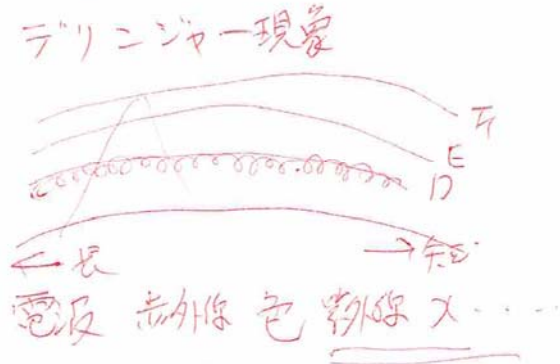 デリンジャー現象
F
E
D
← 長 → 短
電波 赤外線 色 紫外線 X ‥‥